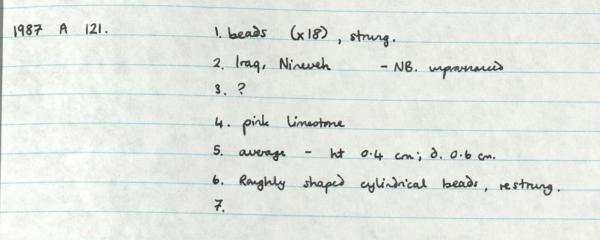 1987 A 121. 1. beads (x18), strung.
2. Iraq, Nineveh - NB. unprovenanced
3. ?
4. pink limestone
5. average - ht 0.4 cm; d. 0.6 cm.
6. Roughly shaped cylindrical beads, restrung.
7.